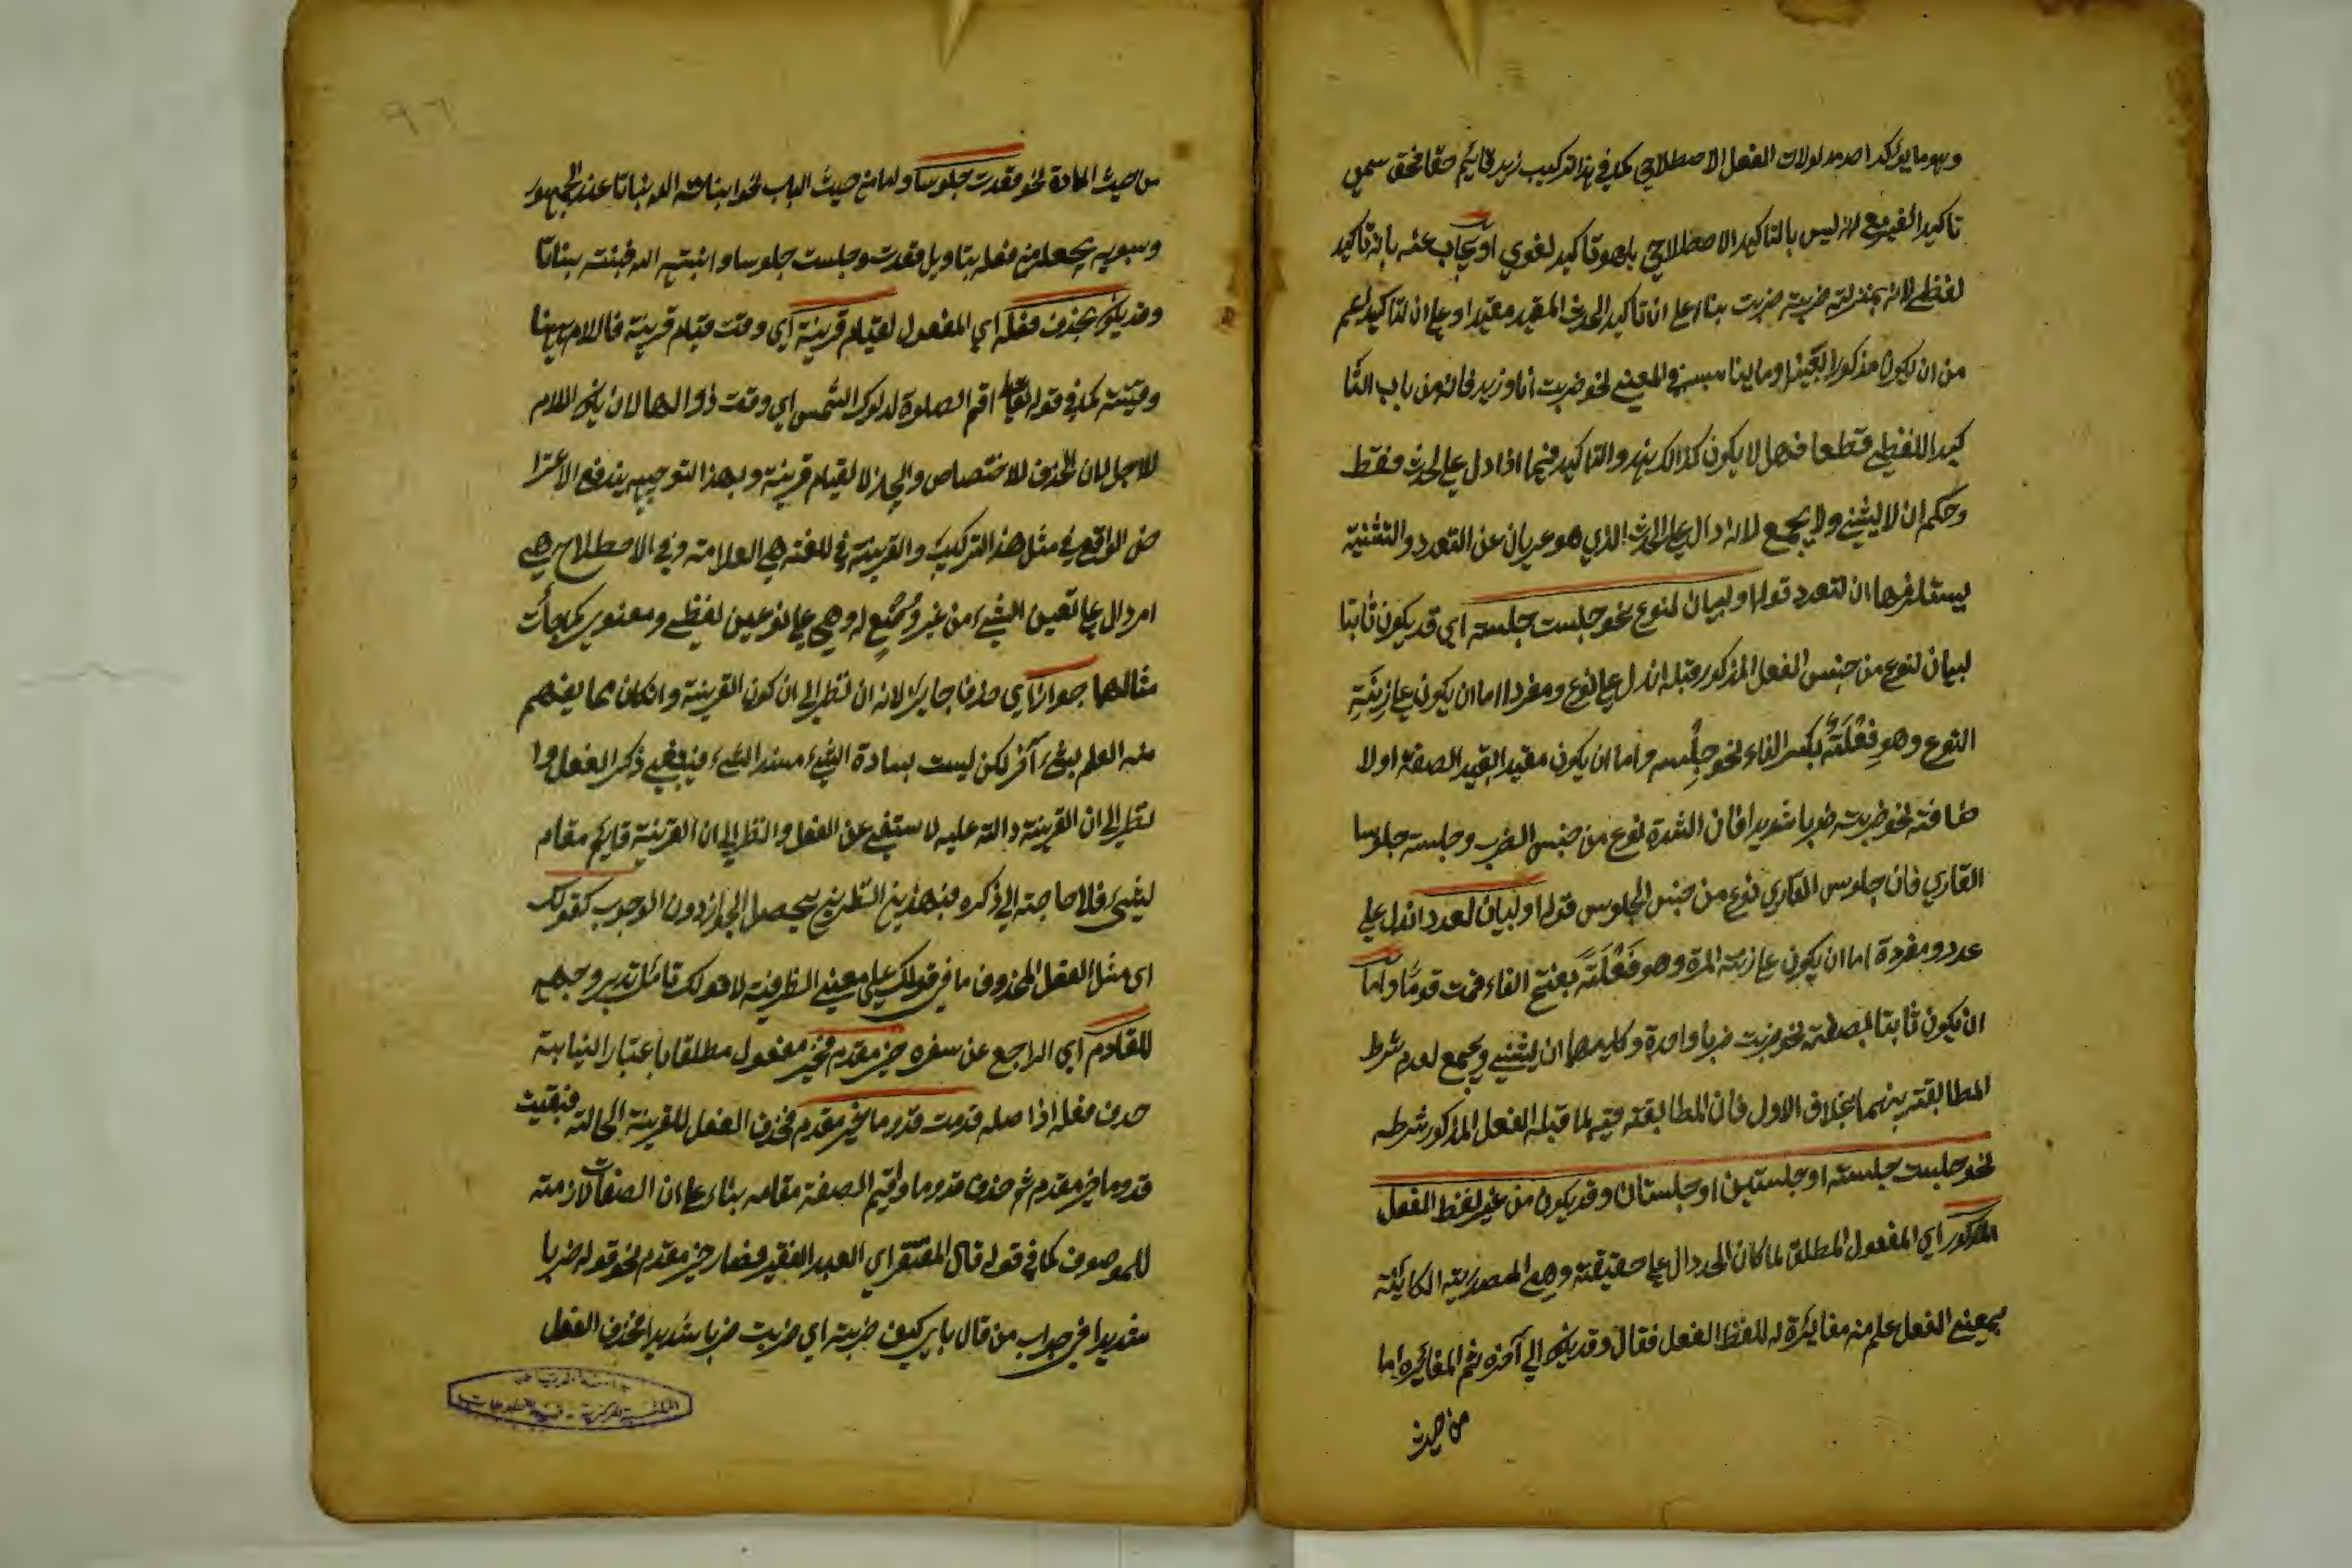 وهو ما يؤكد احد مدلولات الفعل الاصطلاحي كما في هذا التركيب زيد قائم حقا فحق سمي
تاكيدا لغيره مع انه ليس بالتاكيد الاصطلاحي بل هو تاكيد لغوي او يجاب عنه بانه تاكيد
لفظي لانه بمنزلة ضربت ضربت بناء على ان تاكيد الحدث المقيد مقيد او على ان التاكيد اعم
من ان يكون مذكورا بعينه او ما يناسبه في المعنى نحو ضربت انا وزيد فانه من باب التا
كيد اللفظي قطعا فهل لا يكون كذالك والتاكيد فيما اذا دل على الحدث فقط
وحكم ان لا يثنى ولا يجمع لانه دال على الحدث الذي هو عريان عن التعدد والتثنية
يستلزمها ان التعدد قوله او لبيان لنوع نحو جلست جلسة اي قد يكون ثابتا
لبيان لنوع من جنس الفعل المذكور قبله ان دل على نوع ومفردا اما ان يكون على زنة
النوع وهو فِعْلَةٌ بكسر الفاء نحو جِلسة واما ان يكون مقيد القيد الصفة او لا
ضافة نحو ضربت ضربا شديدا فان الشدة نوع من جنس الضرب وجلست جلوسا
القاري فان جلوس القاري نوع من جنس الجلوس قوله او لبيان لعدد ان دل على
عدد ومفردة اما ان يكون على زنة المرة وهو فَعْلَةٌ بفتح الفاء قمت قومًا واما
ان يكون ثابتا لصفة نحو ضربت ضربا واحدة وكليهما ان يثنى ويجمع لعدم شرط
المطابقة بينهما بخلاف الاول فان المطابقة فيه لما قبله الفعل المذكور شرط
نحو جلست جلسة او جلستين او جلستان وقد يكون من غير لفظ الفعل
المذكور اي المفعول المطلق لما كان الحد دال على حقيقته وهي المصدرية الكاينة
بمعنى الفعل علم منه مغايرة له للفظ الفعل فقال وقد يكون الى آخره ثم المغايرة اما
من حيث
من حيث المادة نحو قعدت جلوسا واما من حيث الباب نحو انبته الله نباتا عند الجمهور
وسيبويه يجعله من فعله بتاويل قعدت وجلست جلوسا وانبته الله فنبت نباتا
وقد يكون بحذف فعله اي المفعول لقيام قرينة اي وقت قيام قرينة فاللام ههنا
وقتية كما في قوله تعالى اقم الصلوة لدلوك الشمس اي وقت زوالها لان يكون اللام
للاجل لان الحذف للاختصاص والايجاز لا لقيام قرينة وبهذا التوجيه يندفع الاعترا
ض الواقع في مثل هذا التركيب والقرينة في اللغة هي العلامة وفي الاصطلاح هي
امر دال على تعين الشيء من غير وضع له وهي على نوعين لفظي ومعنوي كما جاءت
مثالها جوازا اي حذفا جايزا لانه ان نظر الى ان كون القرينة وان كان مما يفهم
منه العلم بشيء آخر لكن ليست بسادة الشيء مسد الشيء فينبغي ذكر الفعل وا
نظر الى ان القرينة دالة عليه لاستغنى عن الفعل والنظر الى ان القرينة قايم مقام
الشيء فلا حاجة الى ذكره فبهذين النظرين يحصل الجواز دون الوجوب كقولك
اي مثل الفعل المحذوف ما في قولك على معنى الظرفية لا قولك تامل تدبر وجهه
للقادم اي الراجع عن سفره خير مقدم فخير مفعول مطلقا باعتبار النيابة
حذف فعله اذ اصله قدمت قدوما خير مقدم فحذف الفعل للقرينة الحالية فبقيت
قدوما خير مقدم ثم حذف قدوما واقيم الصفة مقامه بناء على ان الصفات لازمة
للموصوف كما في قوله قال المفتقر اي العبد الفقير فصار خير مقدم نحو قوله ضربا
شديدا في جواب من قال باي كيف ضربته اي ضربت ضربا شديدا فحذف الفعل
جامعة الرياض
المكتبة المركزية - قسم المخطوطات